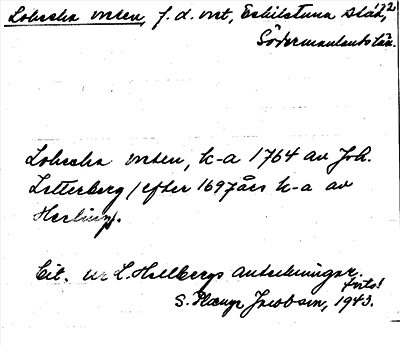 Lohecka vreten, f. d. vret, Eskilstuna stad, 2
Södermanlands län.
Lohecka vreten, k-a 1764 av Joh.
Zetterberg / efter 1697 års k-a av
Herling.
Cit. ur L. Hallbergs anteckningar.
foto!
S. Jacobsen, 1943.